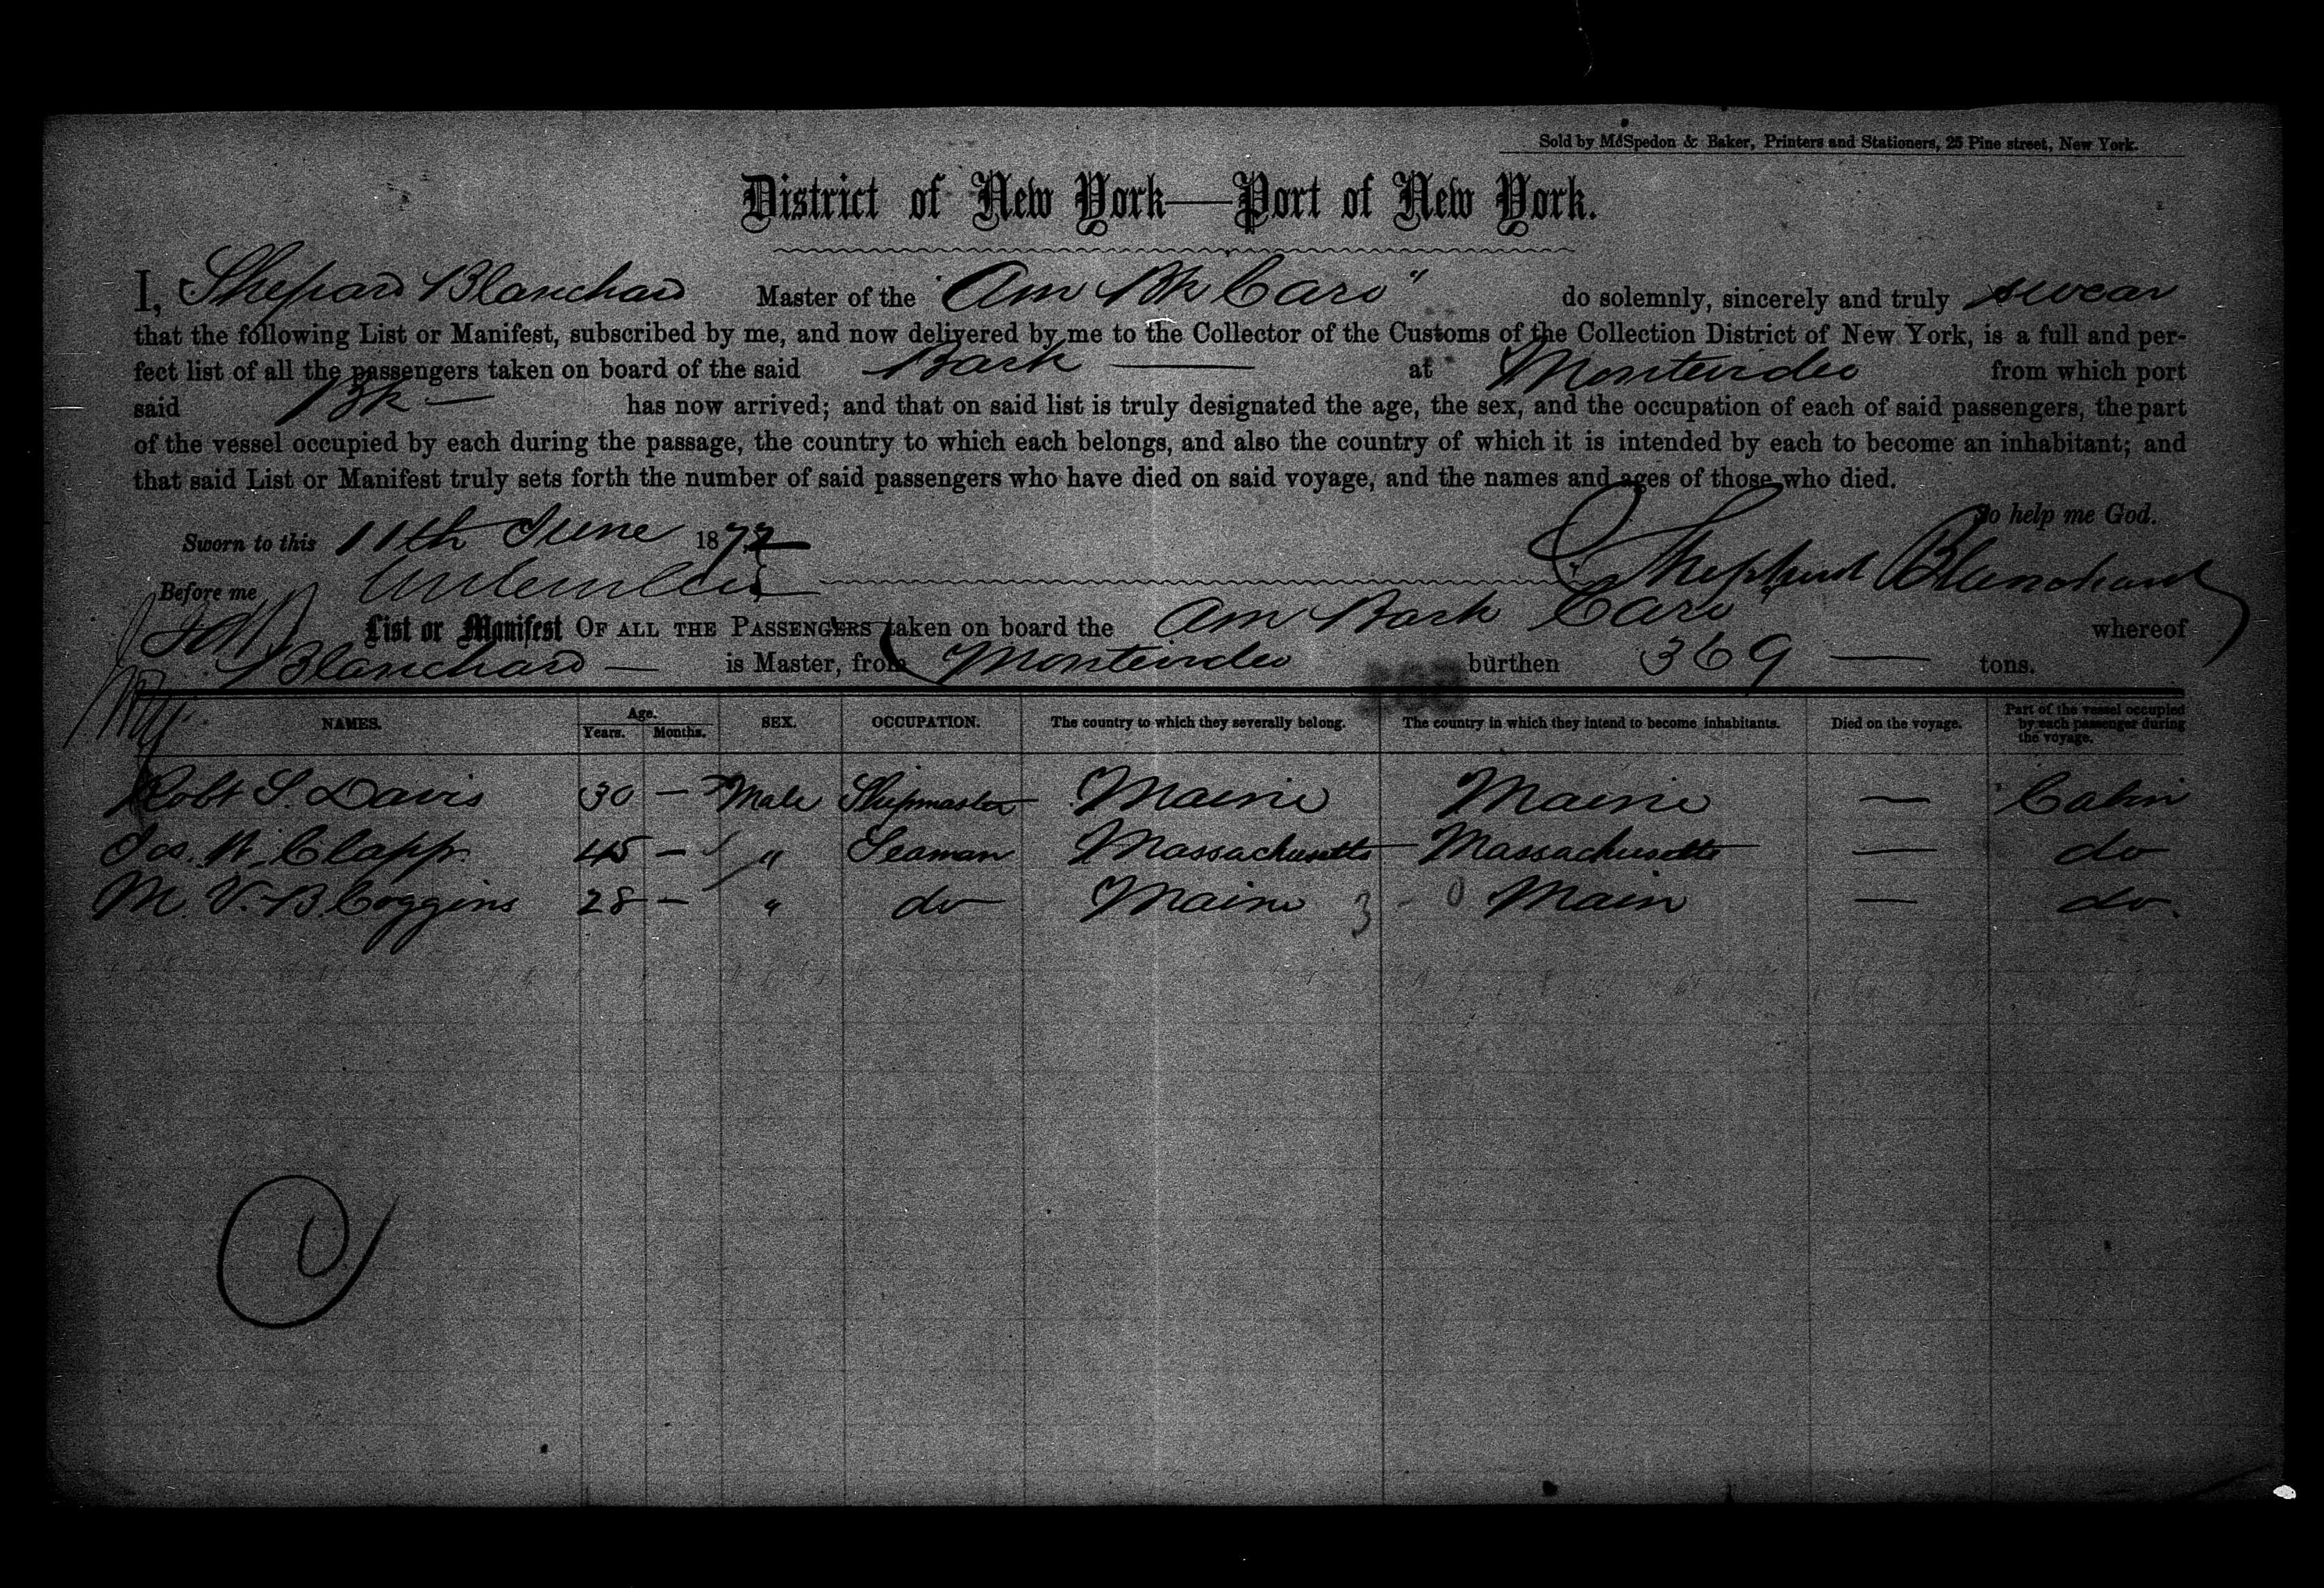 Sold by McSpedon & Baker, Printers and Stationers, 25 Pine street, New York.
District of New York—Port of New York.
I, Shepard Blanchard Master of the "Am Bk Caro" do solemnly, sincerely and truly swear
that the following List or Manifest, subscribed by me, and now delivered by me to the Collector of the Customs of the Collection District of New York, is a full and per-
fect list of all the passengers taken on board of the said Bark — at Montevideo from which port
said Bk — has now arrived; and that on said list is truly designated the age, the sex, and the occupation of each of said passengers, the part
of the vessel occupied by each during the passage, the country to which each belongs, and also the country of which it is intended by each to become an inhabitant; and
that said List or Manifest truly sets forth the number of said passengers who have died on said voyage, and the names and ages of those who died.
So help me God.
Sworn to this 11th June 1872
Before me Shephard Blanchard
List or Manifest OF ALL THE PASSENGERS taken on board the Am Bark Caro whereof
Blanchard — is Master, from Montevideo burthen 369 — tons.
NAMES. Age. Years. Months. SEX. OCCUPATION. The country to which they severally belong. The country in which they intend to become inhabitants. Died on the voyage. Part of the vessel occupied by each passenger during the voyage.
Robt S. Davis 30 — Male Shipmaster Maine Maine — Cabin
Jos. N. Clapp 45 — " Seaman Massachusetts Massachusetts — do
M. V. B. Coggins 28 — " do Maine 3 - 0 Main — do.